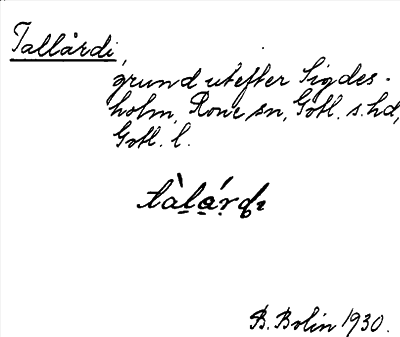 Tallårdi,
grund utefter Sigdes-
holm, Rone sn, Gotl. s. hd,
Gotl. l.
tàlárdɩ
B. Bolin 1930.